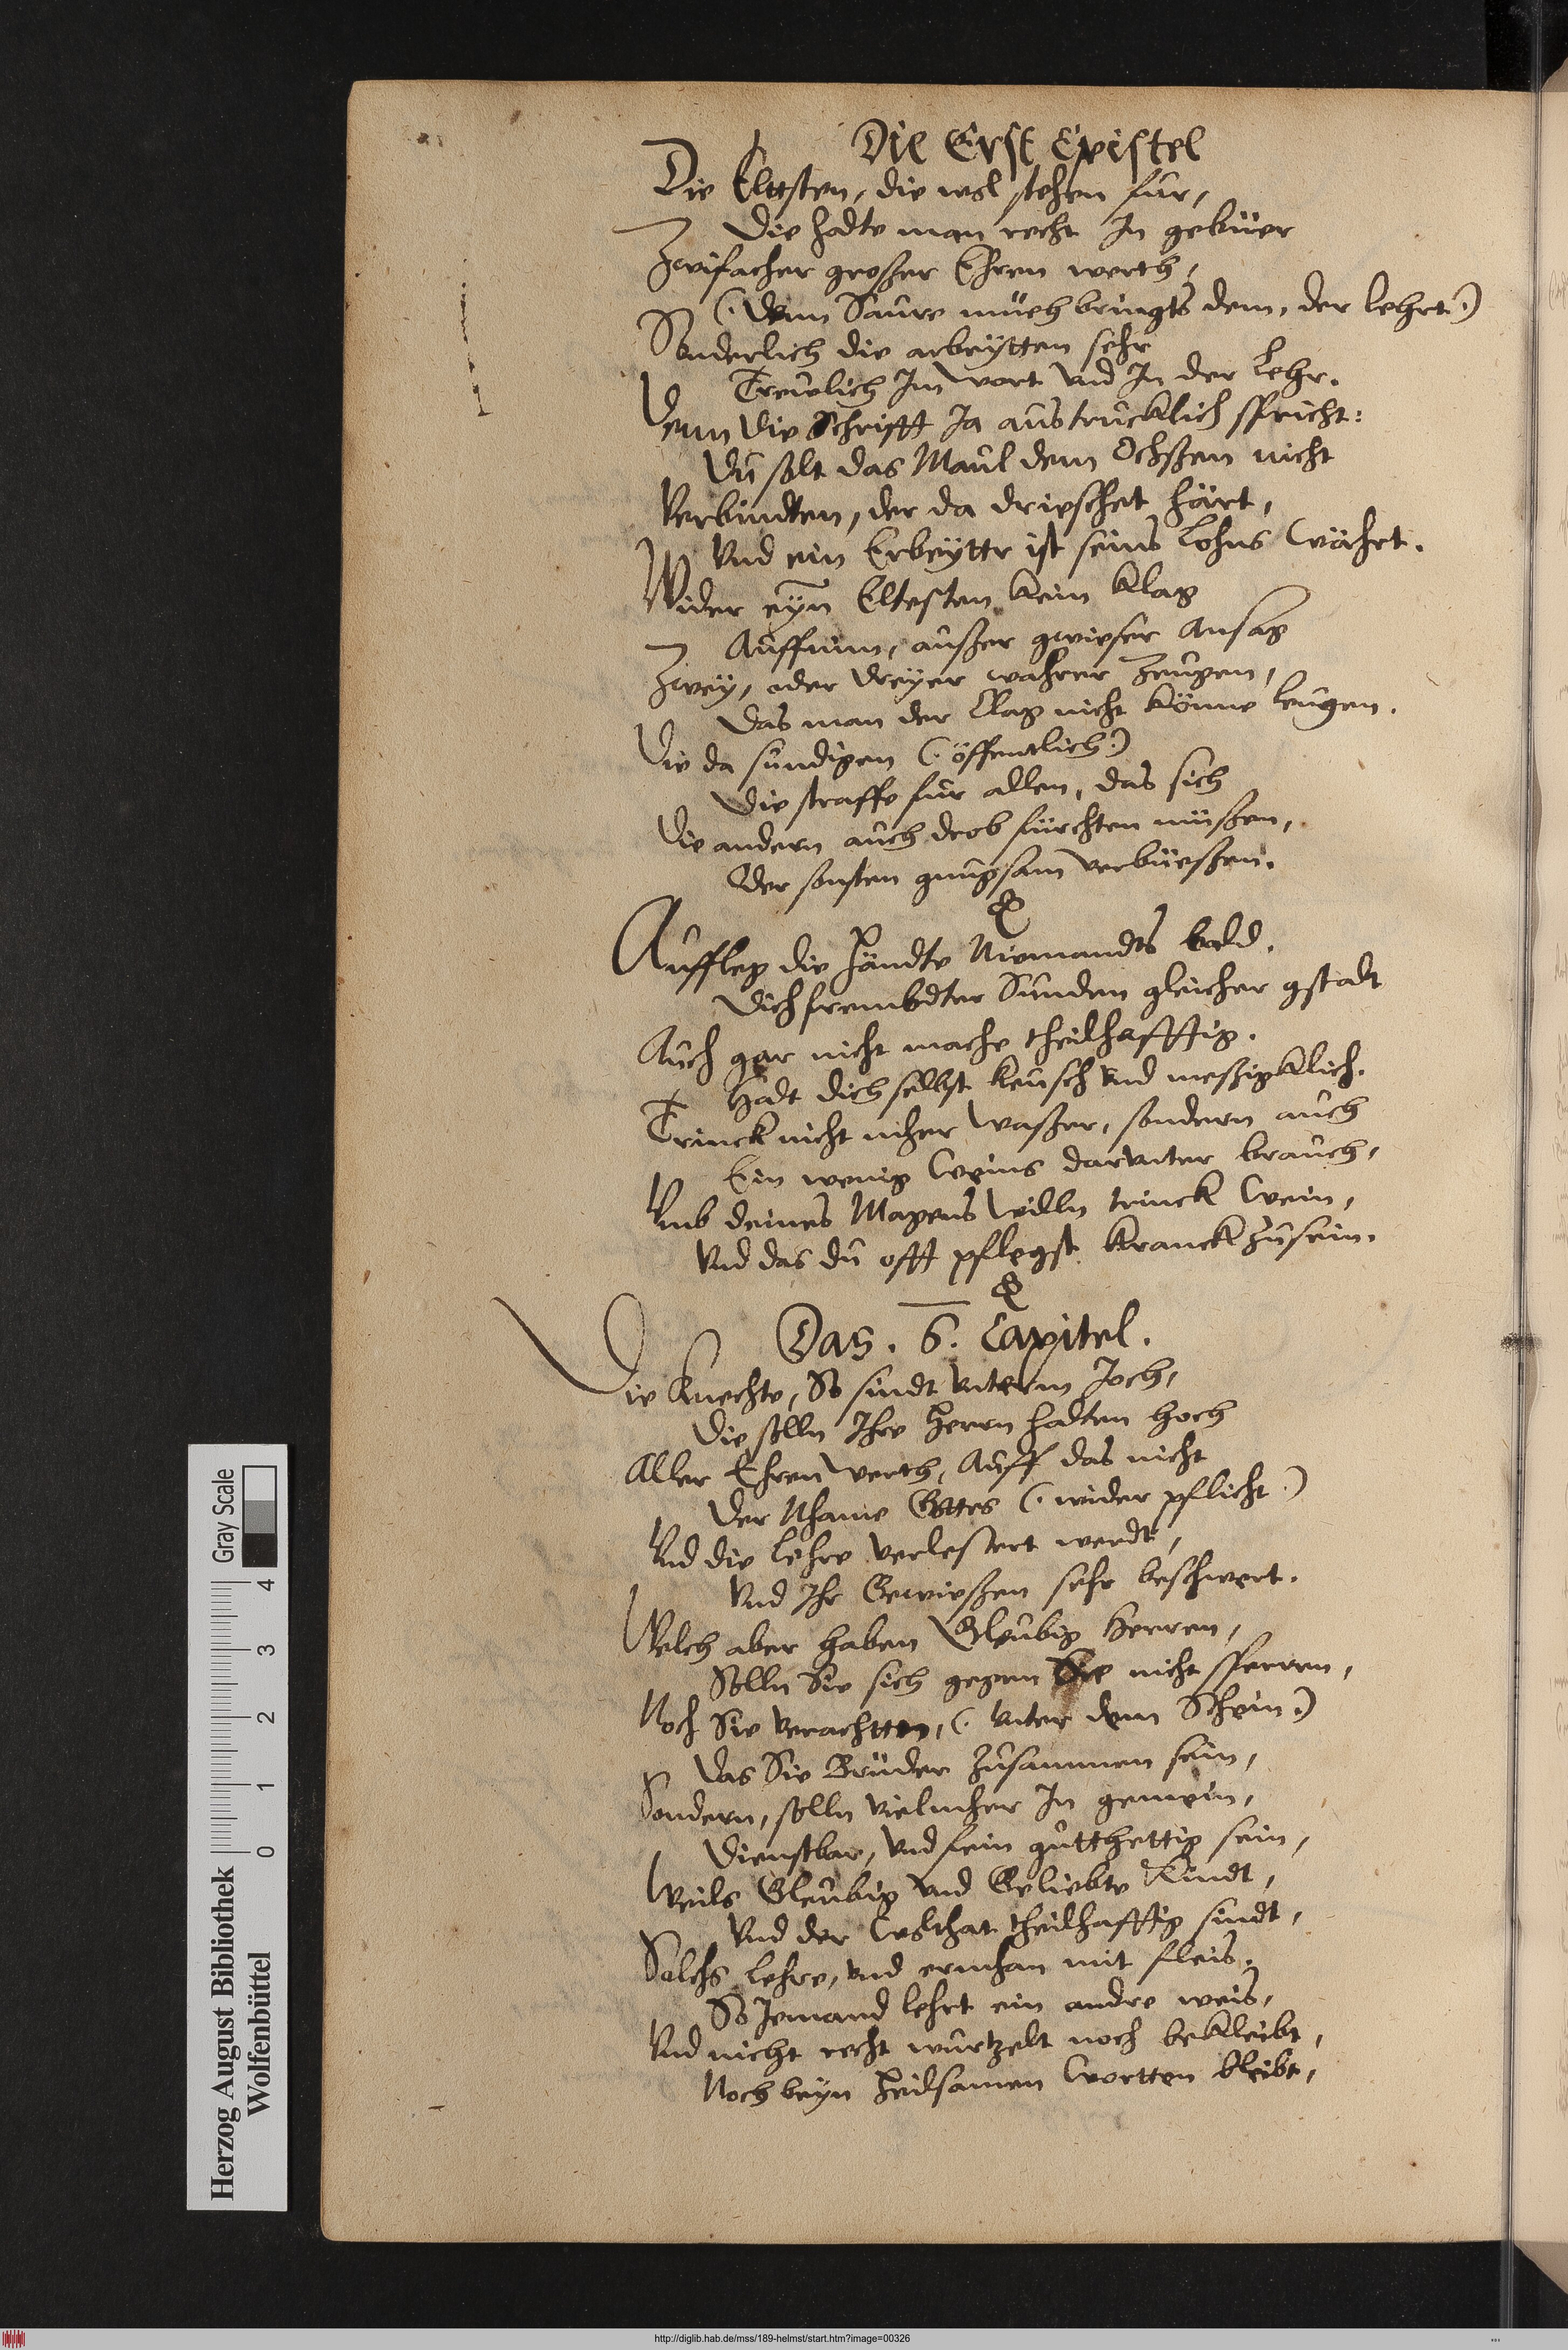 Die Erst Epistel
Die Elttsten, die wol stehen fur,
Die hadte man recht In gebüer
Zwifacher großer Ehren werth,
(Denn Saure müeh bringts dem, der lehrt.)
Sonderlich die arbeytten sehr
Treulich Im wort vnd In der Lehr.
Denn die Schrifft Ja austrucklich spricht:
Du solt das Maul dem Ochßen nicht
Verbindten, der da drieschet härt,
Vnd ein Erbeyttr ist seins Lohns währt.
Wider eyn Eltesten kein klag
Auffnim, außer gwieser Ansag
Zwey, oder dreyer wahrer Zeugen,
Das man der Clag nicht könne leugen.
Die da sundigen (öffentlich)
Die straffe fur allen, das sich
Die andern auch drob fürchten müßen,
Oder sonsten gnugsam verbüeßen.
Auffleg die händte Niemandts bald.
Dich frembdter Sunden gleicher gstadt
Auch gar nicht mache theilhafftig.
Hadt dich selbst keusch vnd meßigklich.
Trinck nicht mher waßer, sondern auch
Ein wenig weins darunter brauch,
Vmb deines Magens willn trinck wein,
Vnd das du offt pflegst kranck zu sein.
Das . 6. Capitel.
Die Knechte, So sindt vnterm Joch,
Die solln Ihre Herrn hadten hoch
Aller Ehren werth, Auff das nicht
Der Nhame Gottes (wider pflicht)
Vnd die Lehre verlestert werdt,
Vnd Ihr Gewießen sehr beschwert.
Welch aber haben Gleubig Herren,
Solln Sie sich gegen Sie nicht sperren,
Noch Sie verachtten, (vnter dem Schein)
Das Sie Brüder zusammen sein,
Sondern, solln vielmher In gemein,
Dienstbar, vnd fein gutthettig sein,
Weils Gleubig vnd Geliebte Kindt,
Vnd der wolthat theilhafftig sindt,
Solchs lehre, vnd ermhan mit fleis,
So Jemand lehrt ein andre weis,
Vnd nicht recht wurtzelt noch bekleibt,
Noch beyn heilsamen wortten bleibt,
Herzog August Bibliothek
Wolfenbüttel
0 1 2 3 4
Gray Scale
http://diglib.hab.de/mss/189-helmst/start.htm?image=00326